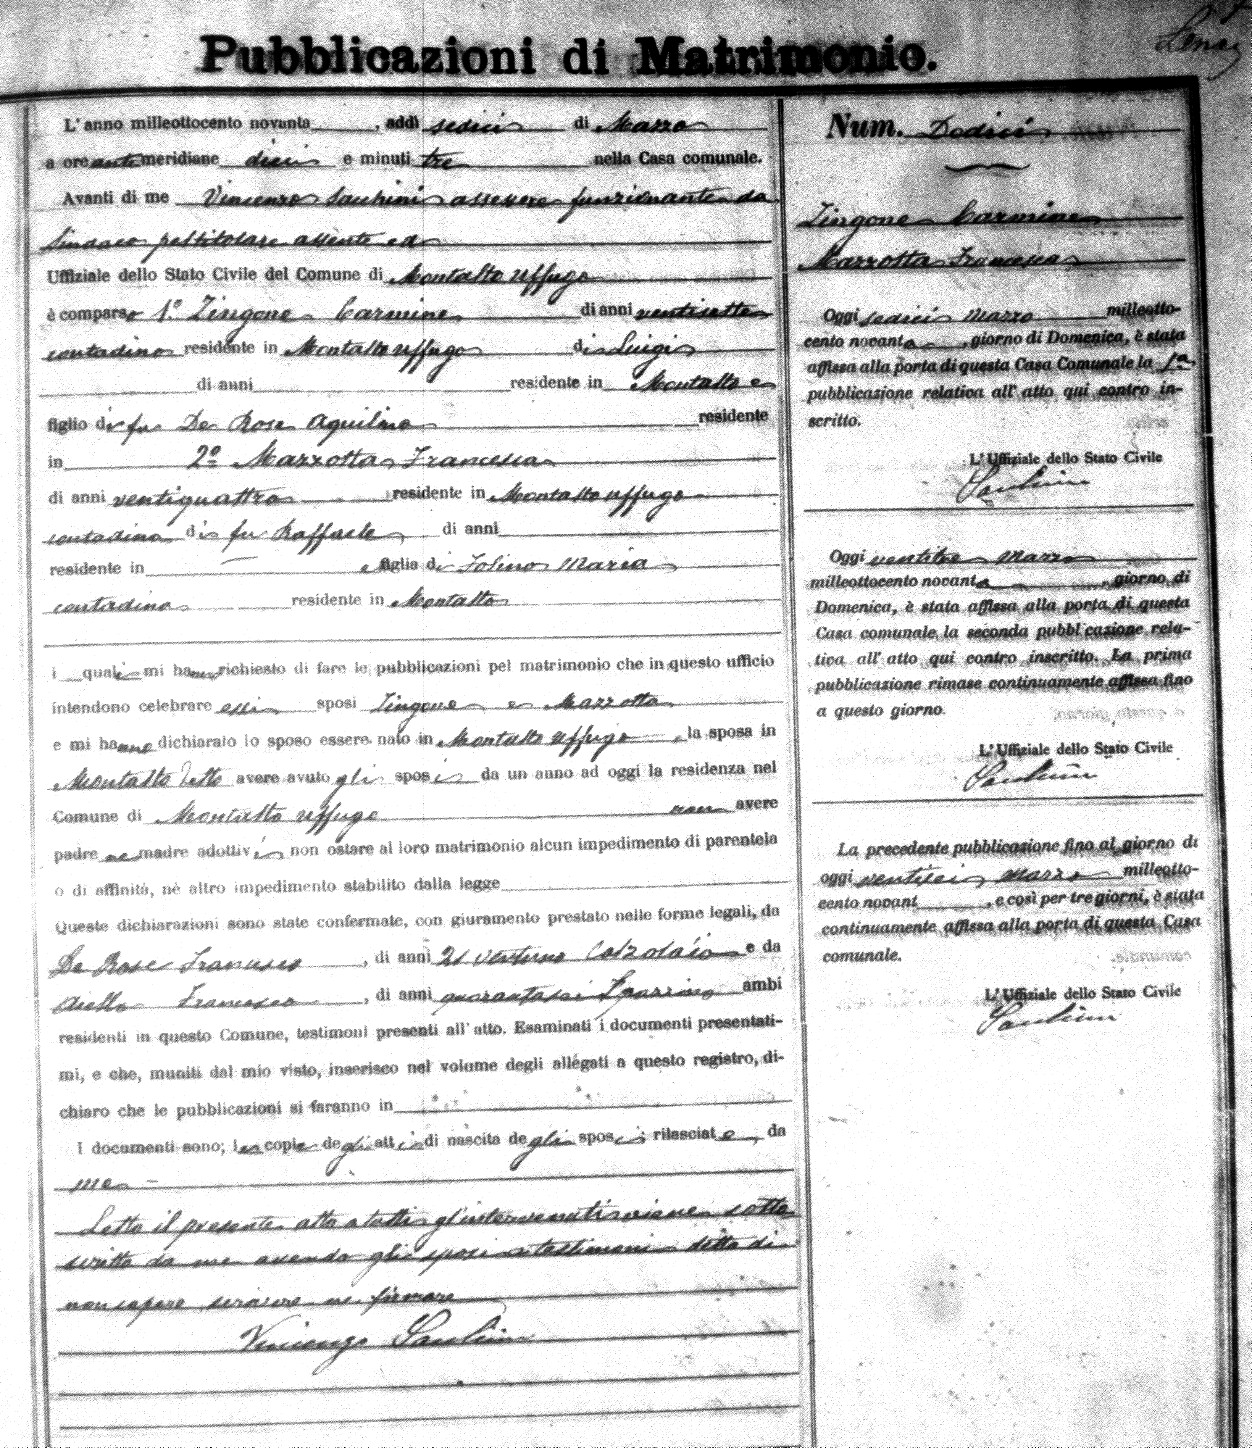 Pubblicazioni di Matrimonio.
L'anno milleottocento novanta, addì sedici di Marzo
a ore antimeridiane dieci e minuti tre nella Casa comunale.
Avanti di me Vincenzo Sacchini assessore funzionante da
Sindaco pel titolare assente ed
Uffiziale dello Stato Civile del Comune di Montalto Uffugo
è comparso 1.º Zingone Carmine di anni ventisette
contadino residente in Montalto Uffugo di Luigi
di anni residente in Montalto e
figlio di fu De Rose Aquilina residente
in 2º Mazzotta Francesca
di anni ventiquattro residente in Montalto Uffugo
contadina di fu Raffaele di anni
residente in e figlia di Maria
contadina residente in Montalto
i quali mi hanno richiesto di fare le pubblicazioni pel matrimonio che in questo ufficio
intendono celebrare essi sposi Zingone e Mazzotta
e mi hanno dichiarato lo sposo essere nato in Montalto Uffugo, la sposa in
Montalto detto avere avuto gli sposi da un anno ad oggi la residenza nel
Comune di Montalto Uffugo non avere
padre ne madre adottivi non ostare al loro matrimonio alcun impedimento di parentela
o di affinità, nè altro impedimento stabilito dalla legge
Queste dichiarazioni sono state confermate, con giuramento prestato nelle forme legali, da
De Rose Francesco, di anni 21 ventuno Calzolaio e da
Aiello Francesco, di anni quarantasei ambi
residenti in questo Comune, testimoni presenti all'atto. Esaminati i documenti presentati-
mi, e che, muniti dal mio visto, inserisco nel volume degli allegati a questo registro, di-
chiaro che le pubblicazioni si faranno in
I documenti sono; le copie degli atti di nascita degli sposi; rilasciate da
me
Letto il presente atto a tutti gl'intervenuti viene sotto
scritto da me avendo gli sposi e testimoni detto di
non sapere scrivere ne firmare
Vincenzo Sacchini
Num. Dodici
Zingone Carmine
Mazzotta Francesca
Oggi sedici Marzo milleotto-
cento novanta, giorno di Domenica, è stata
affissa alla porta di questa Casa Comunale la 1ª
pubblicazione relativa all'atto qui contro in-
scritto.
L'Uffiziale dello Stato Civile
Sacchini
Oggi ventitre Marzo
milleottocento novanta, giorno di
Domenica, è stata affissa alla porta di questa
Casa comunale la seconda pubblicazione rela-
tiva all'atto qui contro inscritto. La prima
pubblicazione rimase continuamente affissa fino
a questo giorno.
L'Uffiziale dello Stato Civile
Sacchini
La precedente pubblicazione fino al giorno di
oggi ventisei Marzo milleotto-
cento novant, e così per tre giorni, è stata
continuamente affissa alla porta di questa Casa
comunale.
L'Uffiziale dello Stato Civile
Sacchini